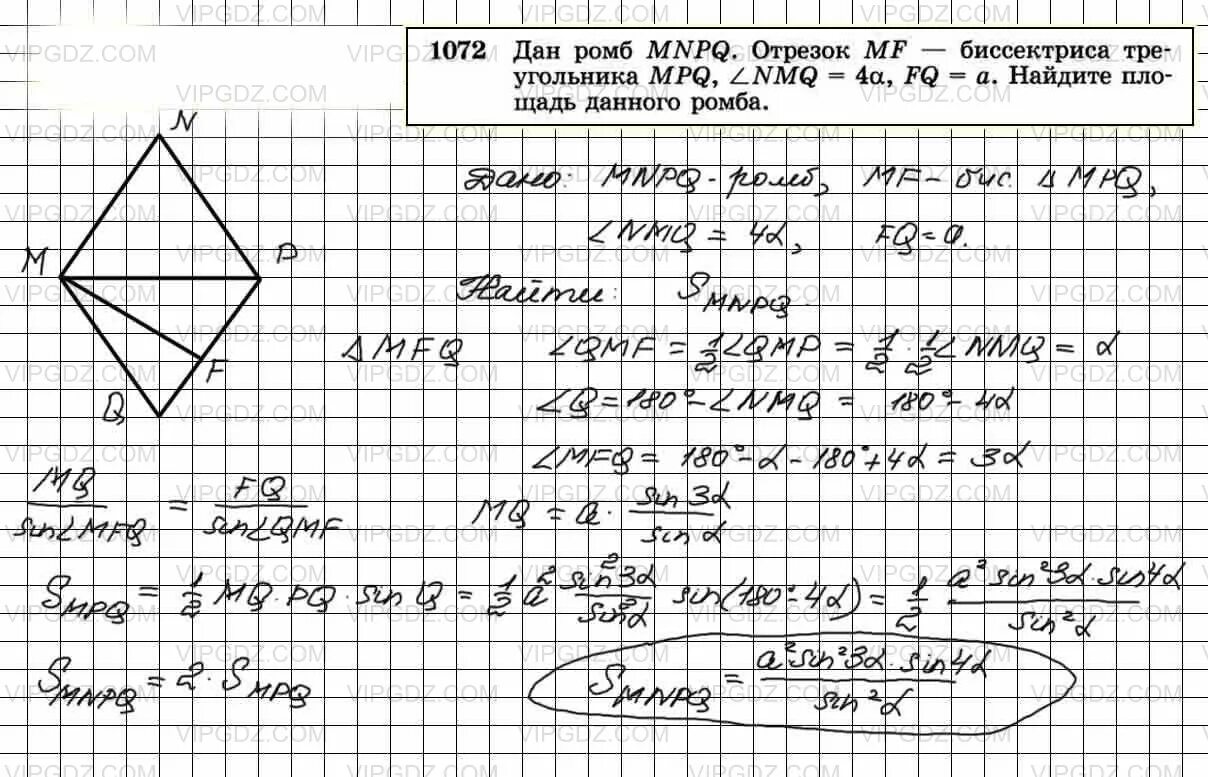 1072 Дан ромб MNPQ. Отрезок MF — биссектриса тре-
угольника MPQ, ∠NMQ = 4α, FQ = a. Найдите пло-
щадь данного ромба.
Дано: MNPQ - ромб, MF - бис. Δ MPQ,
∠NMQ = 4α, FQ = a.
Найти: S_MNPQ.
N
M
P
F
Q
Δ MFQ ∠QMF = 1/2 ∠QMP = 1/2 · 1/2 ∠NMQ = α
∠Q = 180° - ∠NMQ = 180° - 4α
∠MFQ = 180° - α - 180° + 4α = 3α
MQ/sin∠MFQ = FQ/sin∠QMF MQ = a · sin 3α/sin α
S_MPQ = 1/2 MQ · PQ · sin Q = 1/2 a² sin²3α/sin²α sin(180° - 4α) = 1/2 a² sin²3α · sin4α/sin²α
S_MNPQ = 2 · S_MPQ S_MNPQ = a² sin²3α · sin4α/sin²α
VIPGDZ.COM